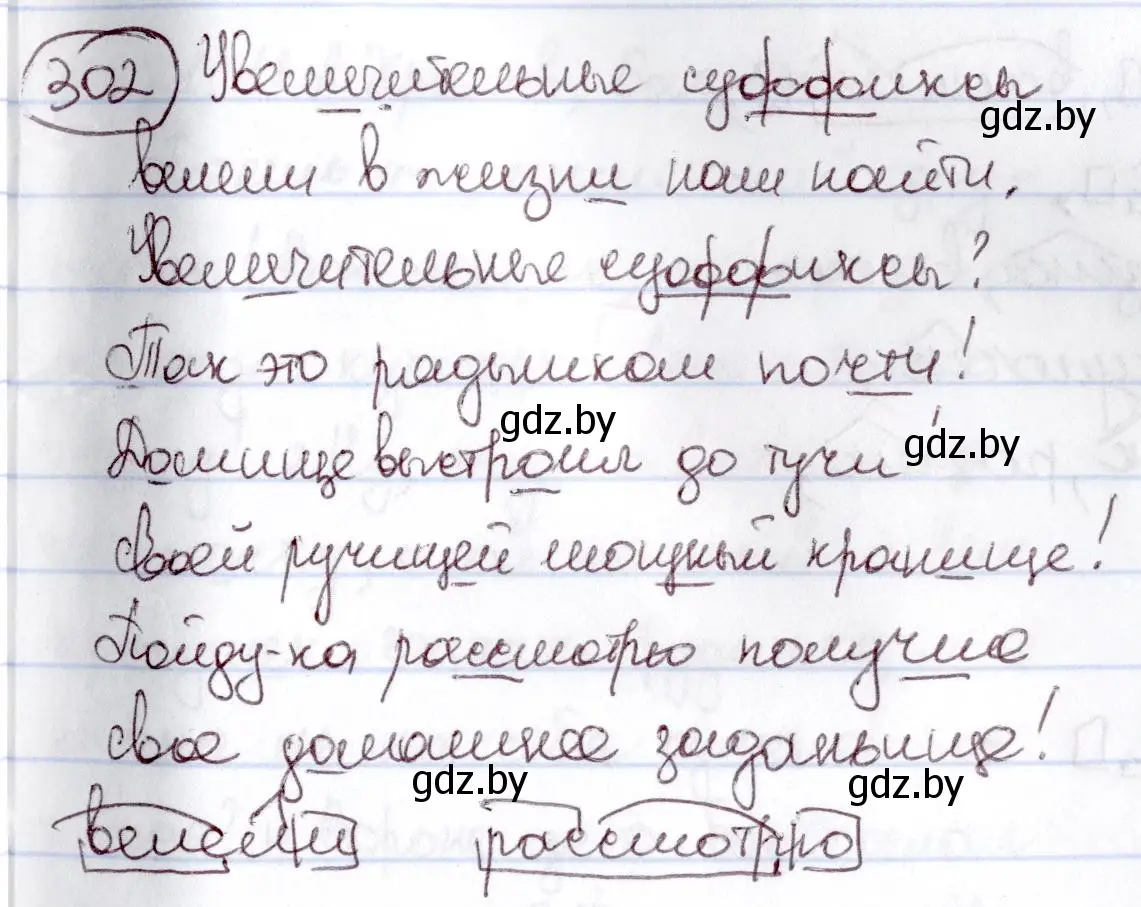 302 Увеличительные суффиксы
gdz.by
велели в жизни нам найти.
Увеличительные суффиксы?
Так это радышком почти!
gdz.by
gdz.by
Домище выстроил до тучи
своей ручищей мощный кранище!
Пойду-ка рассмотрю получше
свое домашнее заданьище!
gdz.by
gdz.by
велели рассмотрю